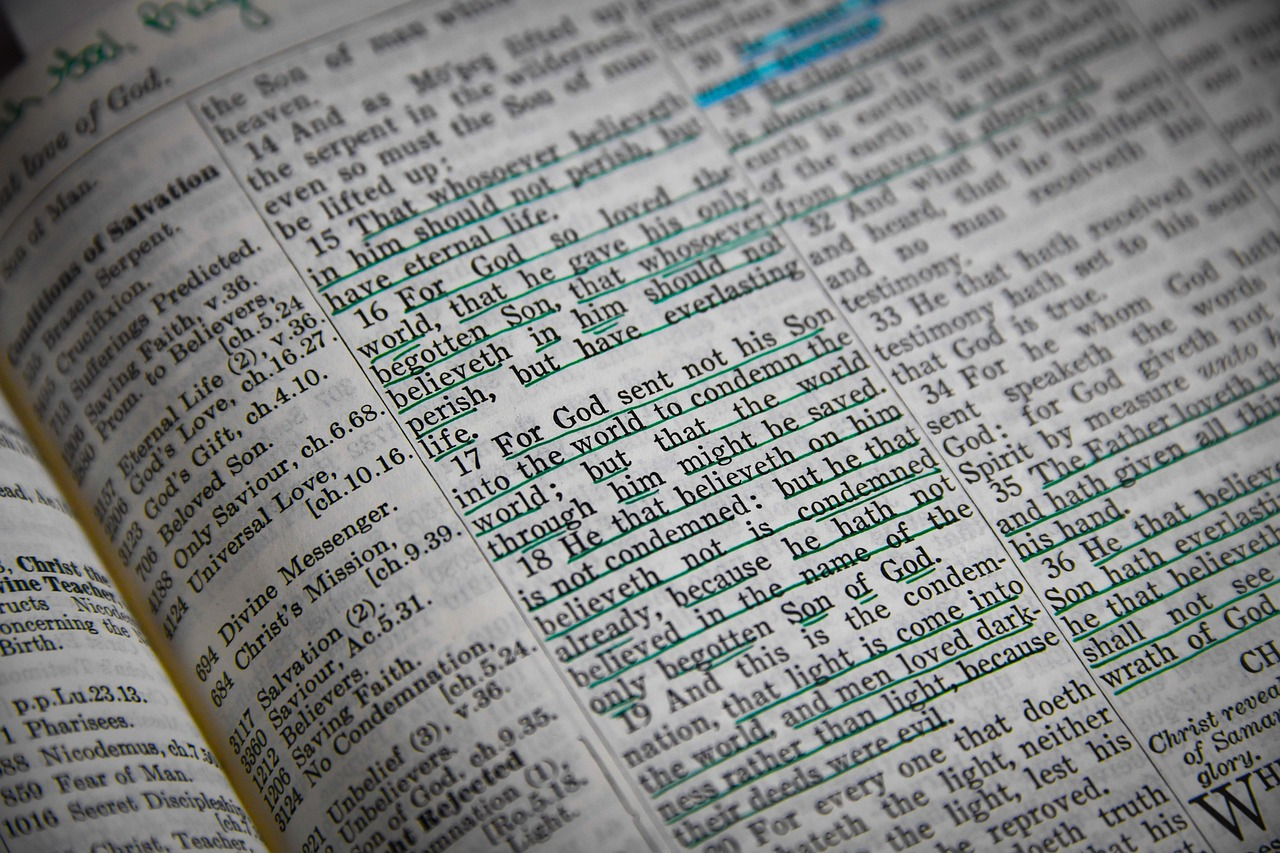 love of God.
Son of Man.
Conditions of Salvation
Brazen Serpent.
Crucifixion.
Sufferings Predicted.
Saving Faith, v.36.
Prom. to Believers,
[ch.5.24
Eternal Life (2), v.36.
God's Love, ch.16.27.
God's Gift, ch.4.10.
Beloved Son.
Only Saviour, ch.6.68.
4124 Universal Love,
[ch.10.16.
694 Divine Messenger.
684 Christ's Mission,
[ch.9.39.
3117 Salvation (2).
3360 Saviour, Ac.5.31.
1212 Believers.
1206 Saving Faith.
3124 No Condemnation,
[ch.5.24.
Unbelief (3), v.36.
Unbelievers.
Son of God, ch.9.35.
Rejected
(1),
[Ro.5.18.
Light.
the Son of man
heaven.
14 And as Mo'ses lifted up
the serpent in the wilderness,
even so must the Son of man
be lifted up:
15 That whosoever believeth
in him should not perish, but
have eternal life.
16 For God so loved the
world, that he gave his only
begotten Son, that whosoever
believeth in him should not
perish, but have everlasting
life.
17 For God sent not his Son
into the world to condemn the
world; but that the world
through him might be saved.
18 He that believeth on him
is not condemned: but he that
believeth not is condemned
already, because he hath not
believed in the name of the
only begotten Son of God.
19 And this is the condem-
nation, that light is come into
the world, and men loved dark-
ness rather than light, because
their deeds were evil.
20 For every one that doeth
hateth the light, neither
the light, lest his
be reproved.
doeth truth
that his
30
31 He that cometh
is above all: he that is of
earth is earthly, and speaketh
of the earth: he that cometh
from heaven is above all.
32 And what he hath seen
and heard, that he testifieth;
and no man receiveth his
testimony.
33 He that hath received his
testimony hath set to his seal
that God is true.
34 For he whom God hath
sent speaketh the words
God: for God giveth not
Spirit by measure unto
35 The Father loveth
and hath given all
his hand.
36 He that
Son hath
he that believeth
shall not see
wrath of God
Christ
of
glory.
Christ the
Teacher
Birth.
p.p.Lu.23.13.
Pharisees.
Nicodemus,
859 Fear of Man.
1016 Secret Discipleship
Christ, Teacher,